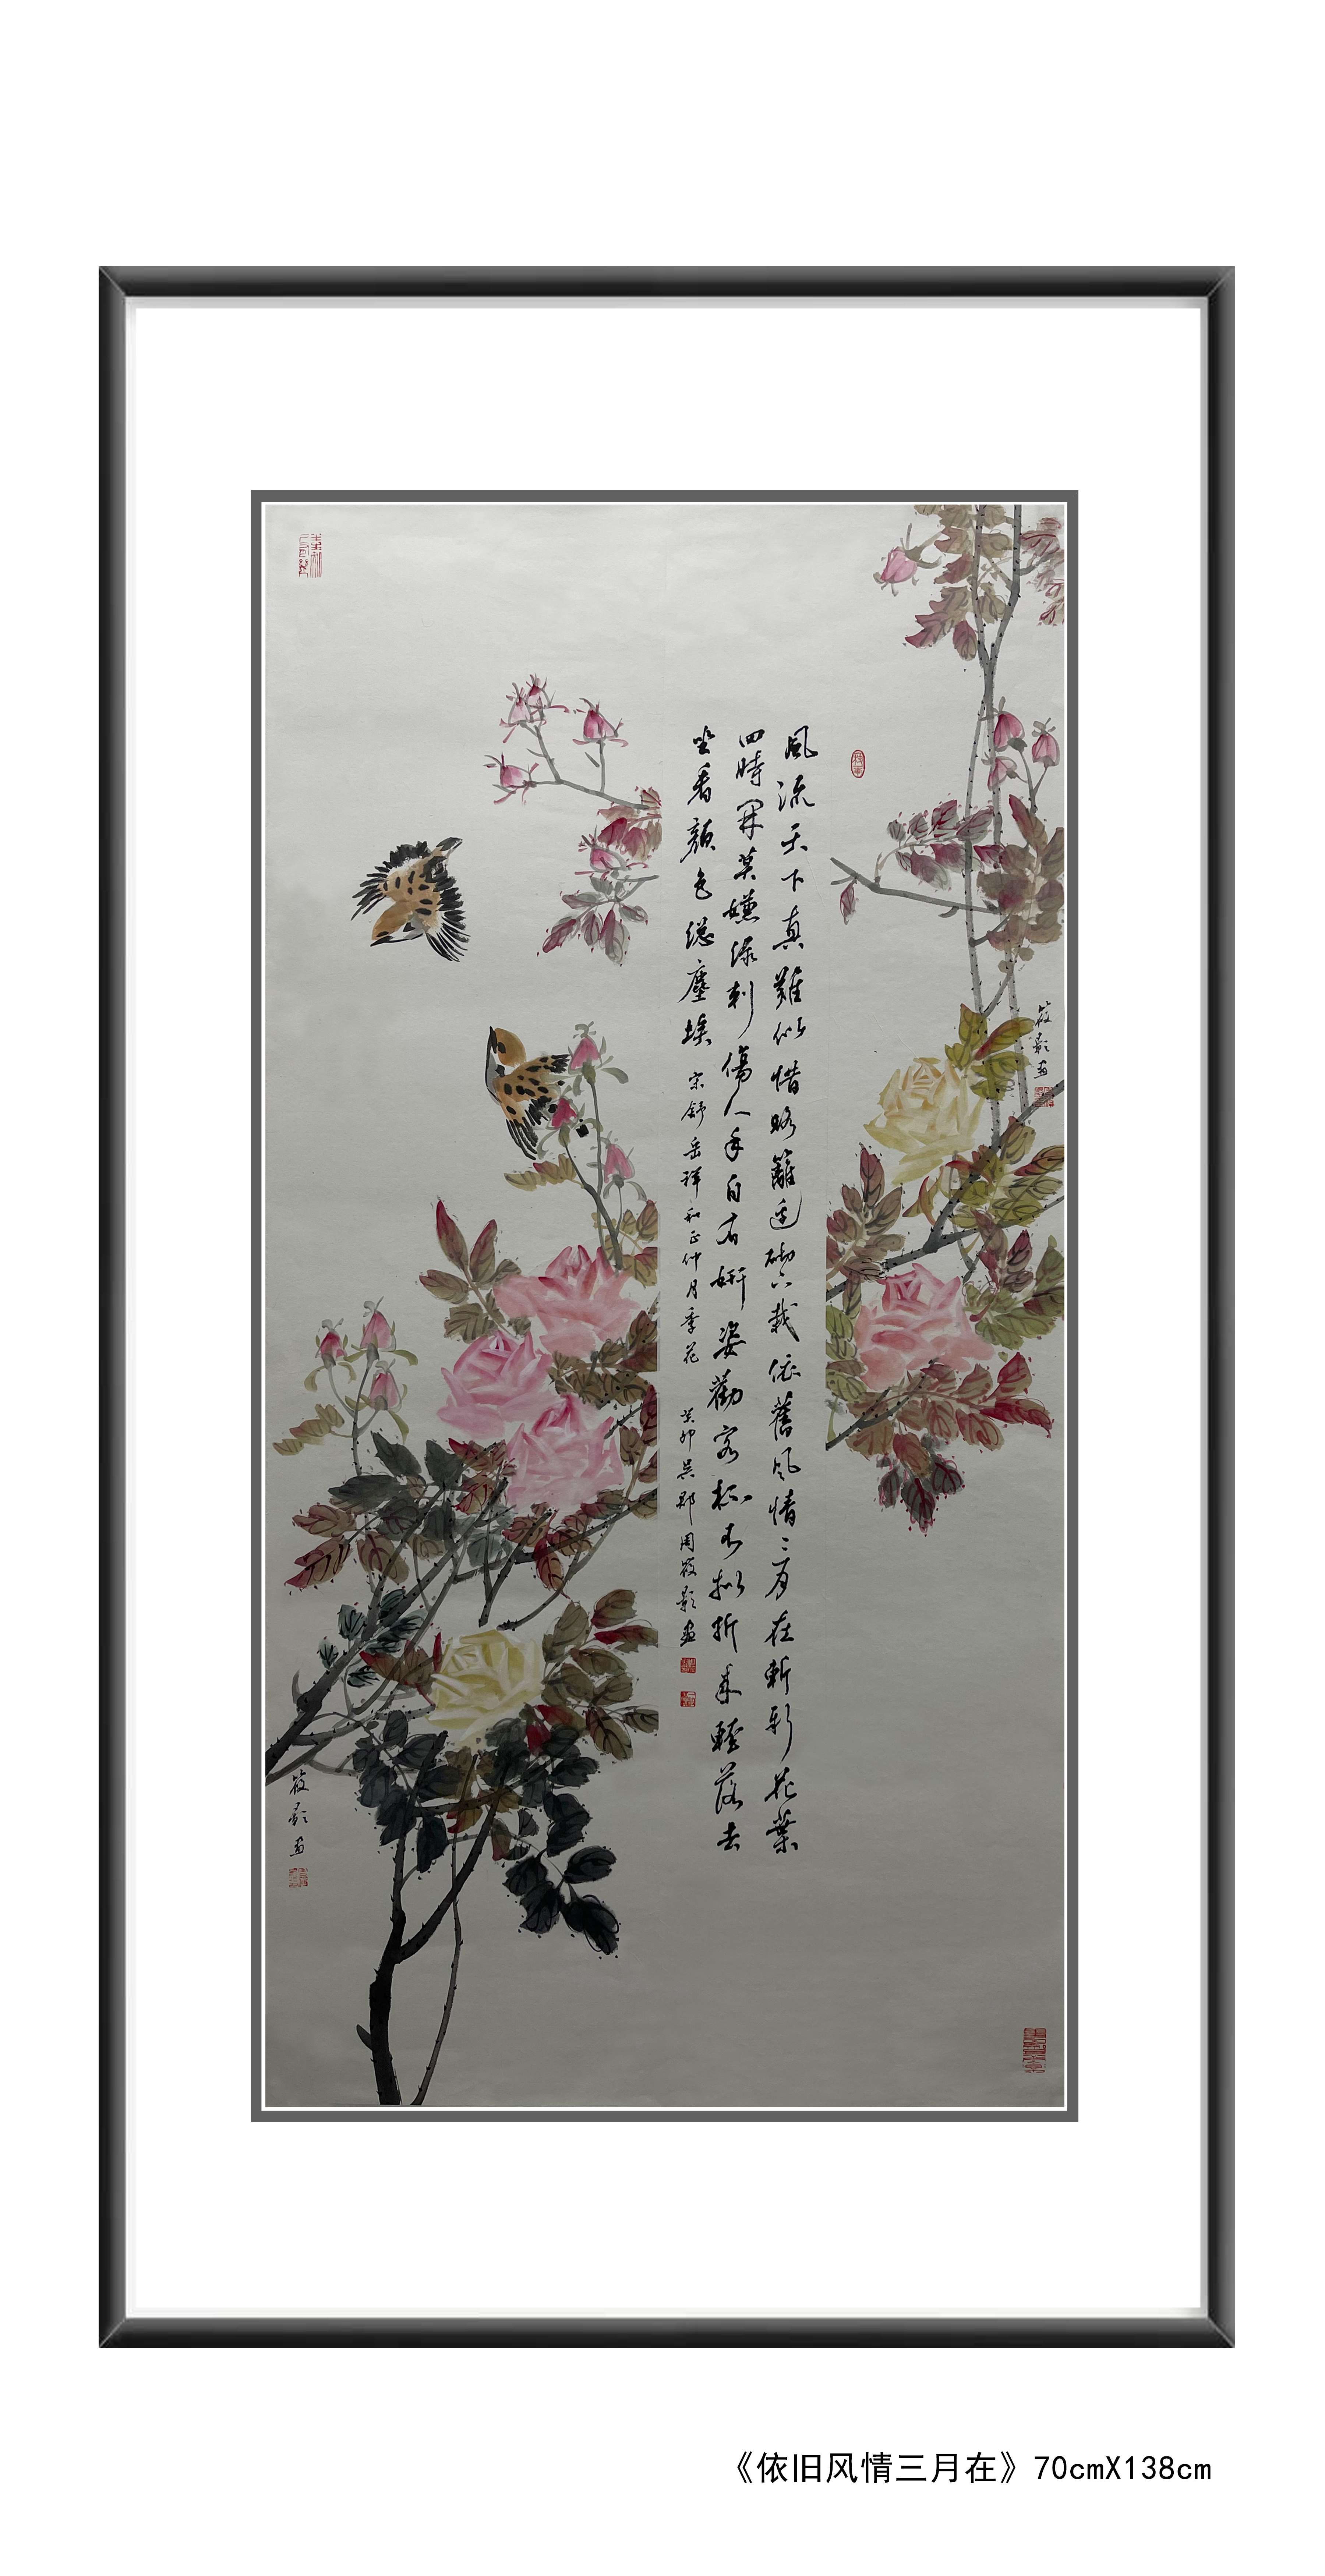 風流天下真難似惜略籬邊砌下栽依舊風情三月在斬新花葉
四時開莫嫌綠刺傷人手自有妍姿勸客杯不拟折來輕落去
坐看顏色總塵埃
宋舒岳祥和正仲月季花
癸卯吳郡周筱影畫
筱影畫
筱影畫
《依旧风情三月在》70cmX138cm